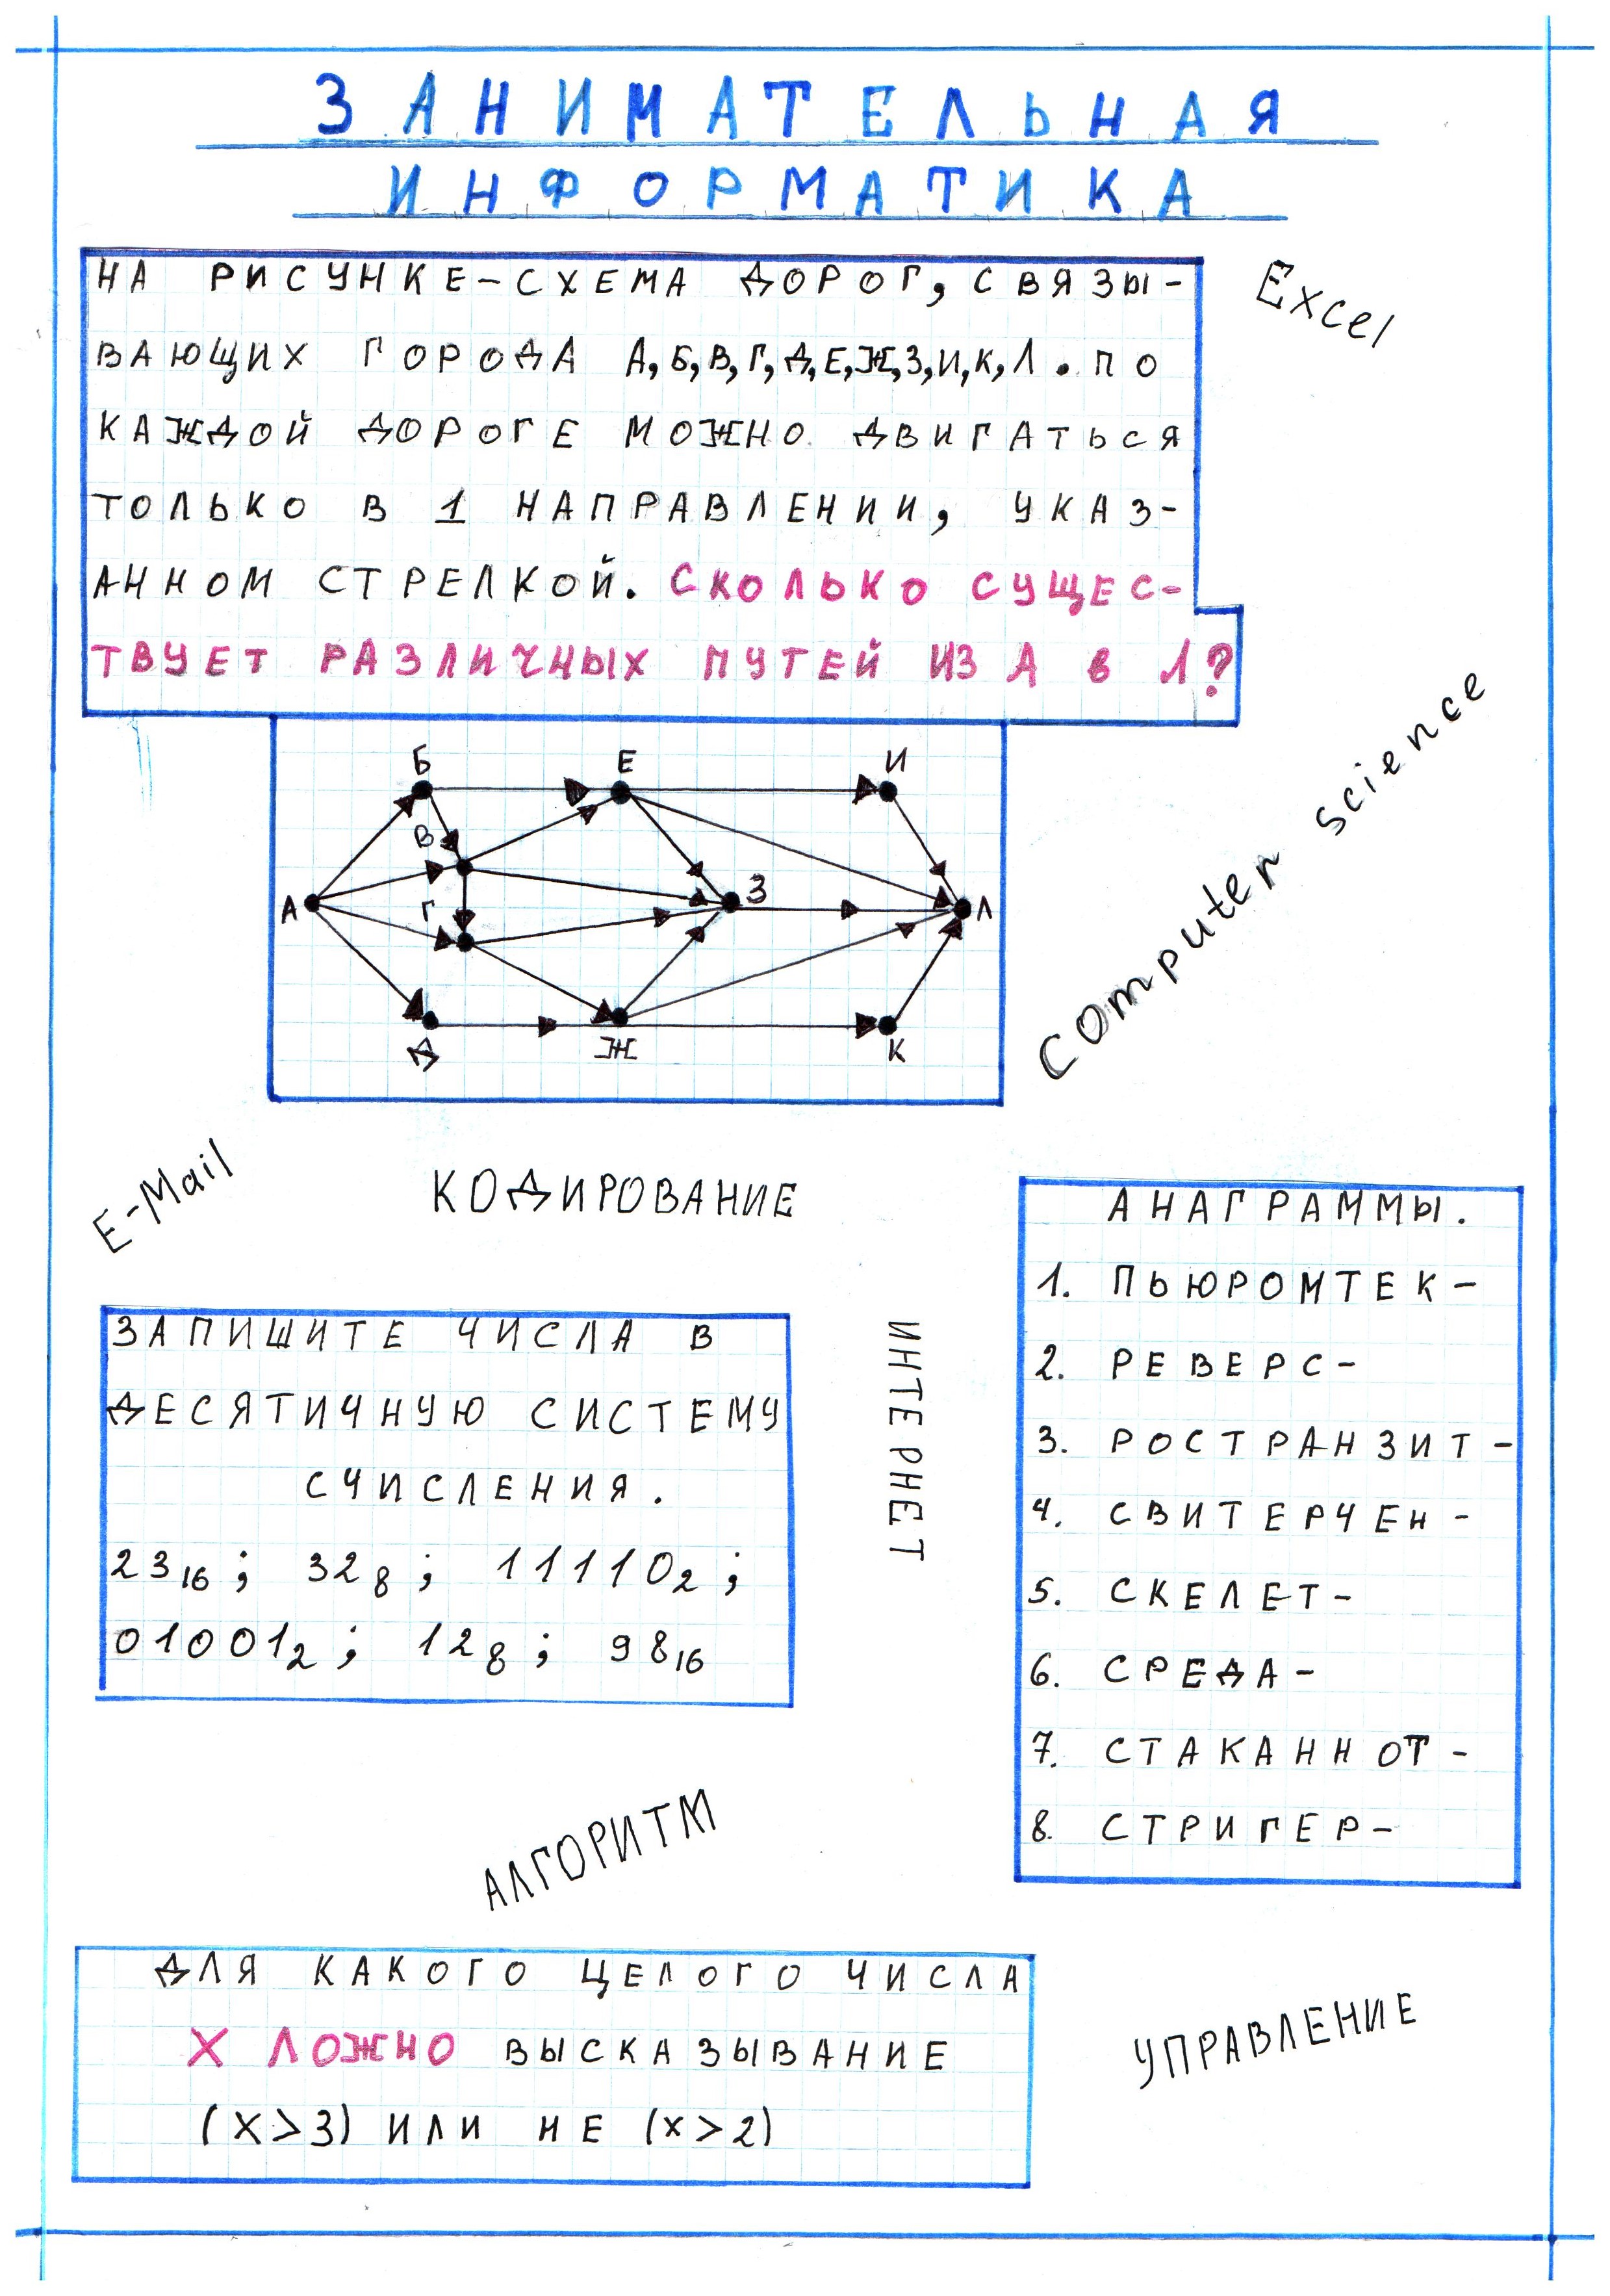 ЗАНИМАТЕЛЬНАЯ
ИНФОРМАТИКА
НА РИСУНКЕ-СХЕМА ДОРОГ, СВЯЗЫ-
ВАЮЩИХ ГОРОДА А,Б,В,Г,Д,Е,Ж,З,И,К,Л. ПО
КАЖДОЙ ДОРОГЕ МОЖНО ДВИГАТЬСЯ
ТОЛЬКО В 1 НАПРАВЛЕНИИ, УКАЗ-
АННОМ СТРЕЛКОЙ. СКОЛЬКО СУЩЕС-
ТВУЕТ РАЗЛИЧНЫХ ПУТЕЙ ИЗ А В Л?
Excel
Computer science
Б
Е
И
В
А
Г
З
Л
Д
Ж
К
E-Mail
КОДИРОВАНИЕ
ЗАПИШИТЕ ЧИСЛА В
ДЕСЯТИЧНУЮ СИСТЕМУ
СЧИСЛЕНИЯ.
23₁₆; 32₈; 11110₂;
01001₂; 12₈; 98₁₆
ИНТЕРНЕТ
АНАГРАММЫ.
1. ПЬЮРОМТЕК-
2. РЕВЕРС-
3. РОСТРАНЗИТ-
4. СВИТЕРЧЕН-
5. СКЕЛЕТ-
6. СРЕДА-
7. СТАКАННОТ-
8. СТРИГЕР-
АЛГОРИТМ
ДЛЯ КАКОГО ЦЕЛОГО ЧИСЛА
X ЛОЖНО ВЫСКАЗЫВАНИЕ
(X>3) ИЛИ НЕ (X>2)
УПРАВЛЕНИЕ